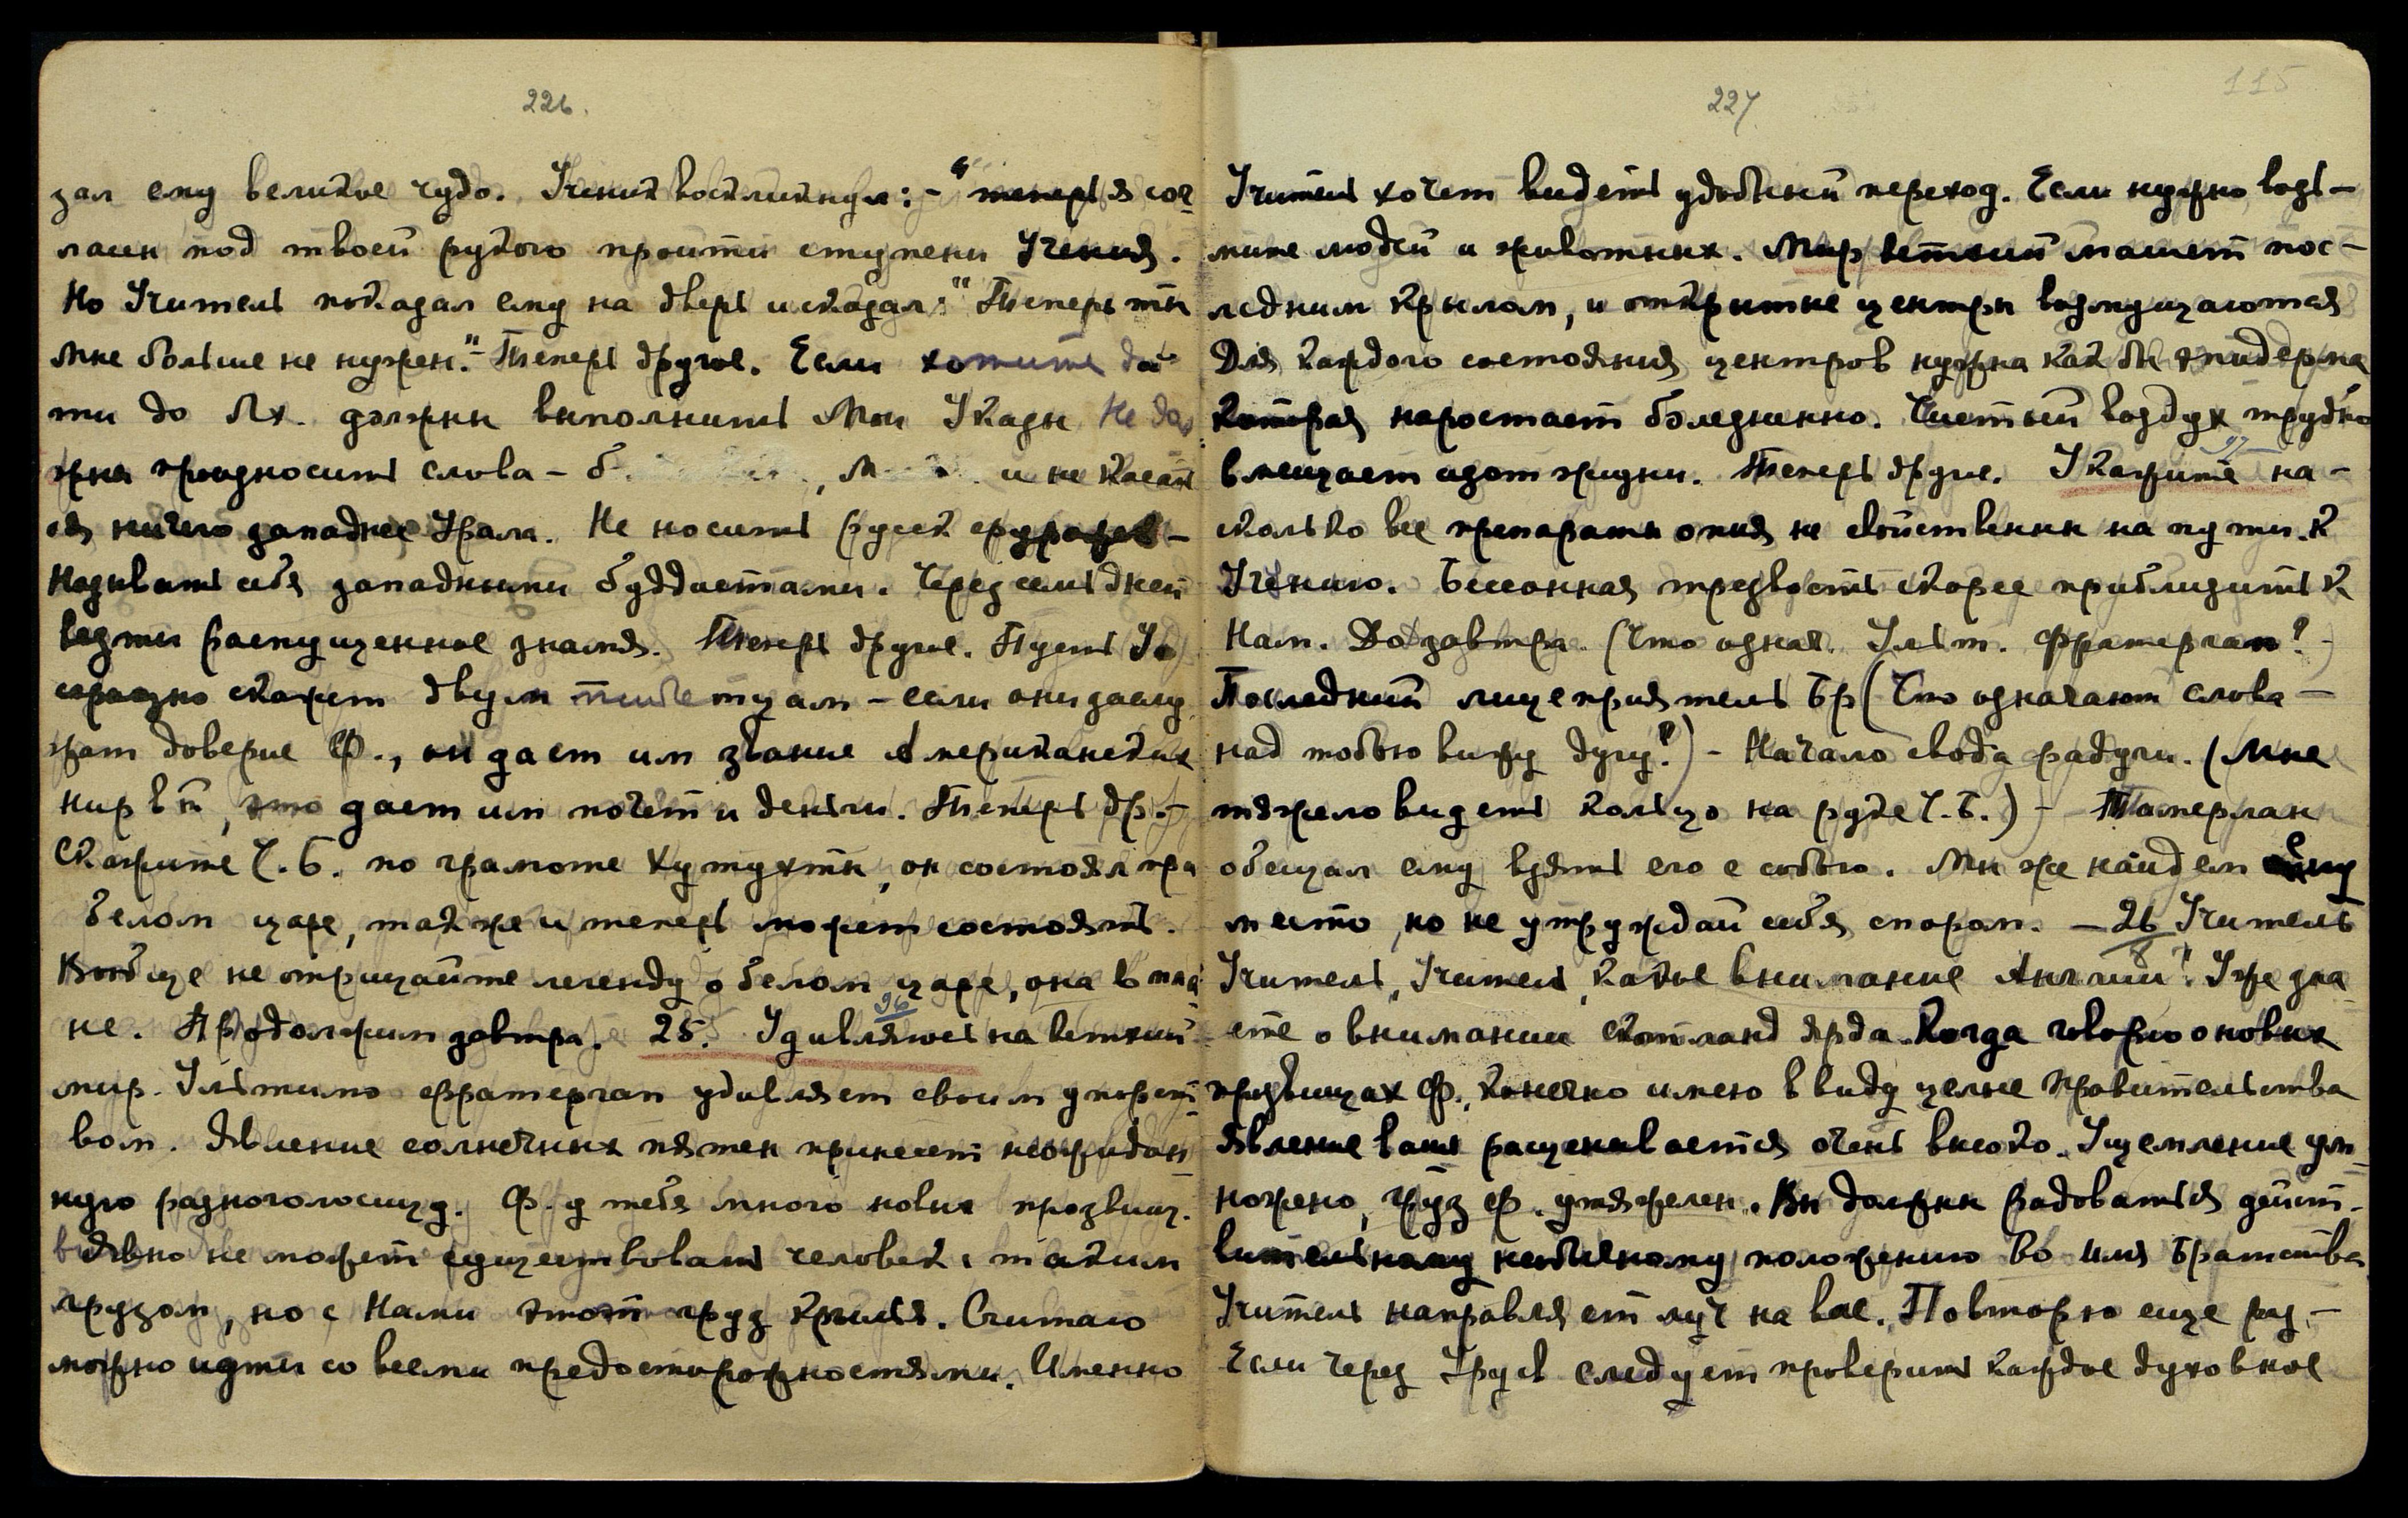 226.
зал ему великое чудо. Ученик воскликнул: - "теперь я сог
ласен под твоей рукою пройти ступени Учения.
Но Учитель показал ему на дверь и сказал: "Теперь ты
мне больше не нужен." - Теперь другое. Если хотите дой
ти до Лх. должны выполнить Мои Указы Не дол
жна произносить слова - и не касать
ся ничего западнее Урала. Не носить русск
Называть себя западными буддистами. Через семь дней
везти распущенное знамя. Теперь другое. Пусть
скажет двум тибетцам - если они заслу
жат доверие Ф., он дает им звание Американских
это дает им почет и деньги. Теперь др. -
Скажите Ч.Б. по грамоте хутухты, он состоял при
белом царе, также и теперь может состоять.
Вообще не отрицайте легенду о белом царе, она в
не. Продолжим завтра. 25. 26 Удивляюсь на ветхий
мир. Ультимо фратерган удивляет своим упорст
вом. Явление солнечных пятен принесет неожидан
ную разноголосицу. Ф. у тебя много новых прозвищ.
Явно не может существовать человек с таким
грузом, но с Нами этот груз крылья. Считаю
можно идти со всеми предосторожностями. Именно
115
227
Учитель хочет видеть удобный переход. Если нужно возь-
мите людей и животных. Мир ветхий машет пос-
ледним крылом, и открытые центры возмущаются
Для каждого состояния центров нужна как бы эпидерма
которая наростает болезненно. Чистый воздух трудно
вмещает азот жизни. Теперь другое. Укажите на-
сколько все препараты опия не свойственны на пути к
Учению. Бессонная трезвость скорее приблизит к
Нам. До завтра. (Что означ. Ульт. Фратерган? -)
Последний лицеприятель Бр (Что означают слова -
над тобою вижу дугу?) - Начало свода радуги. (Мне
тяжело видеть кольцо на руке Ч.Б.) - Тамерлан
обещал ему взять его с собою. Мы же найдем ему
место, но не утруждай себя спором. - 26 Учитель
Учитель, Учитель, какое внимание Англии? Уже зна
ете о внимании Скотланд Ярда. Когда говорю о новых
прозвищах Ф., конечно имею в виду целые правительства
Явление ваше расценивается очень высоко. Ущемление ум
ножено, груз Ф. утяжелен. Вы должны радоваться дейст-
вительному необычному положению Во имя Братства
Учитель направляет луч на вас. Повторю еще раз, -
Если через Урусв следует проверить каждое духовное